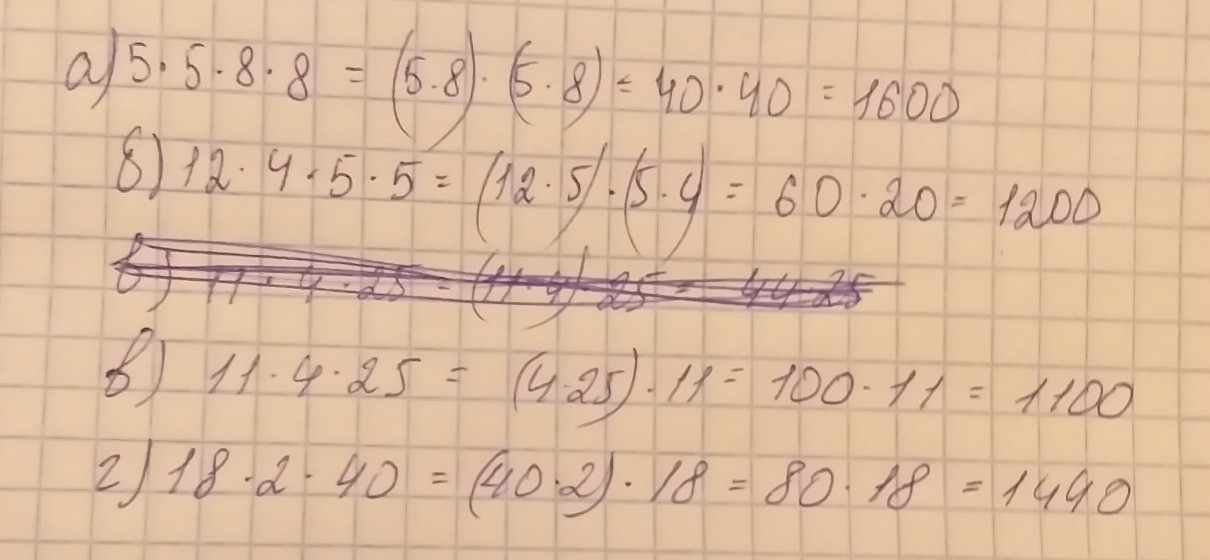 а) 5·5·8·8 = (5·8)·(5·8) = 40·40 = 1600
б) 12·4·5·5 = (12·5)·(5·4) = 60·20 = 1200
в) 11·4·25 = (11·4)·25 = 44·25
в) 11·4·25 = (4·25)·11 = 100·11 = 1100
г) 18·2·40 = (40·2)·18 = 80·18 = 1490